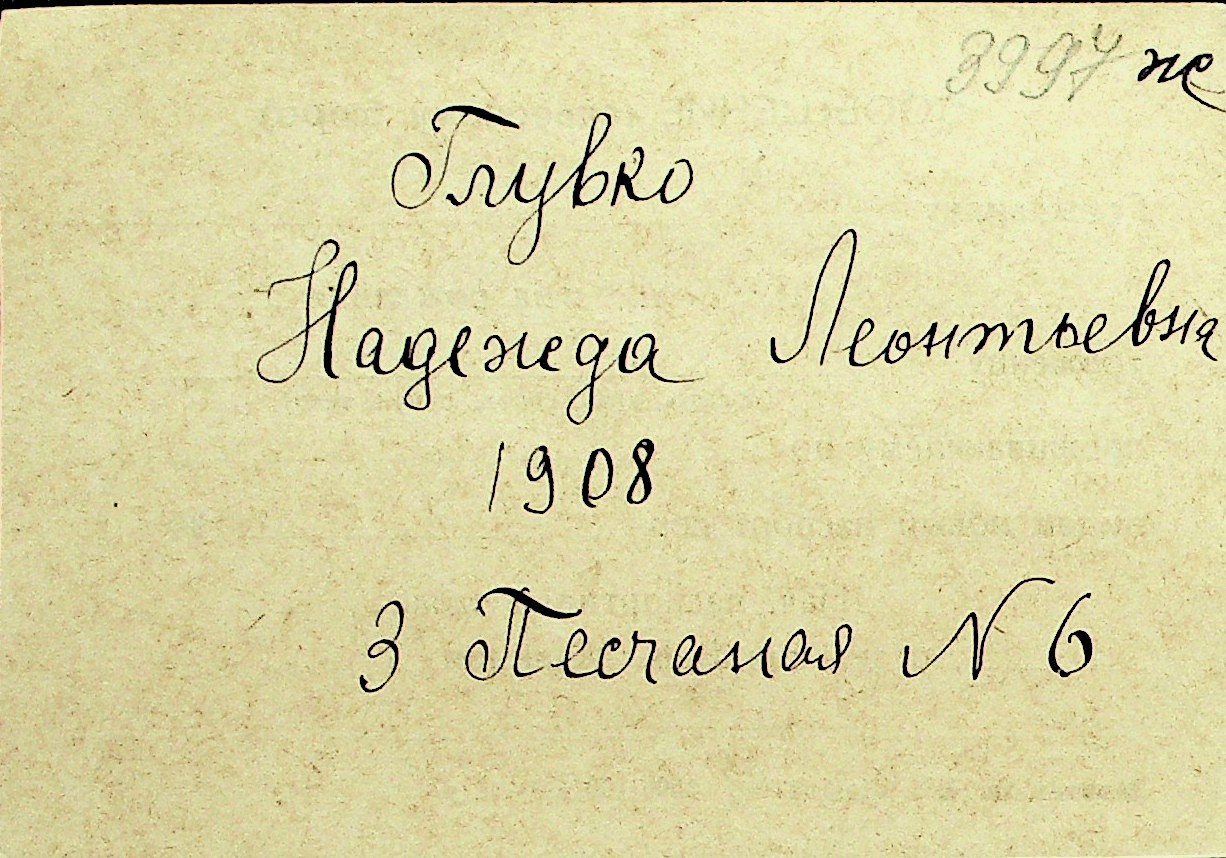 3997 же
Глувко
Надежда Леонтьевна
1908
3 Песчаная N 6